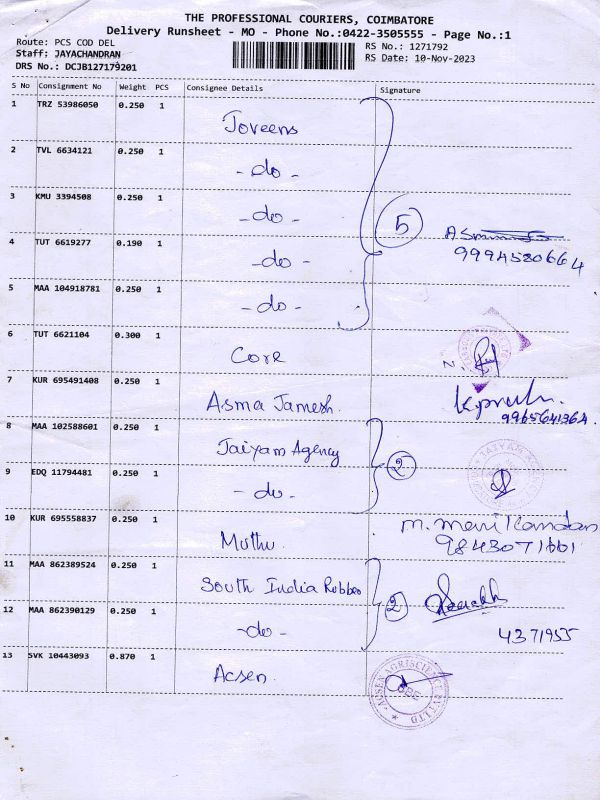 THE PROFESSIONAL COURIERS, COIMBATORE
Delivery Runsheet - MO - Phone No.:0422-3505555 - Page No.:1
Route: PCS COD DEL
RS No.: 1271792
Staff: JAYACHANDRAN
RS Date: 10-Nov-2023
DRS No.: DCJB127179201
S No Consignment No Weight PCS Consignee Details Signature
1 TRZ 53986050 0.250 1
Joveens
2 TVL 6634121 0.250 1
-do-
3 KMU 3394508 0.250 1
-do- 5
4 TUT 6619277 0.190 1
-do- 9994580664
5 MAA 104918781 0.250 1
-do-
6 TUT 6621104 0.300 1
Core
7 KUR 695491408 0.250 1
Asma Jamesh.
9965641364.
8 MAA 102588601 0.250 1
Jaiyam Agency 2
9 EDQ 11794481 0.250 1
-do-
10 KUR 695558837 0.250 1
Muthu
9843071661
11 MAA 862389524 0.250 1
South India Rubber 2
12 MAA 862390129 0.250 1
-do-
4371955
13 SVK 10443093 0.870 1
Acsen